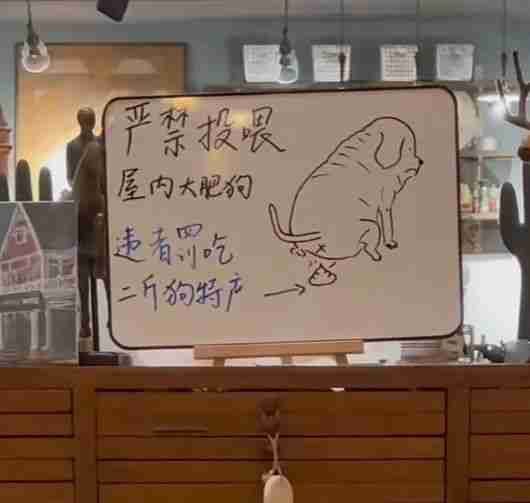 严禁投喂
屋内大肥狗
违者罚吃
二斤狗特产